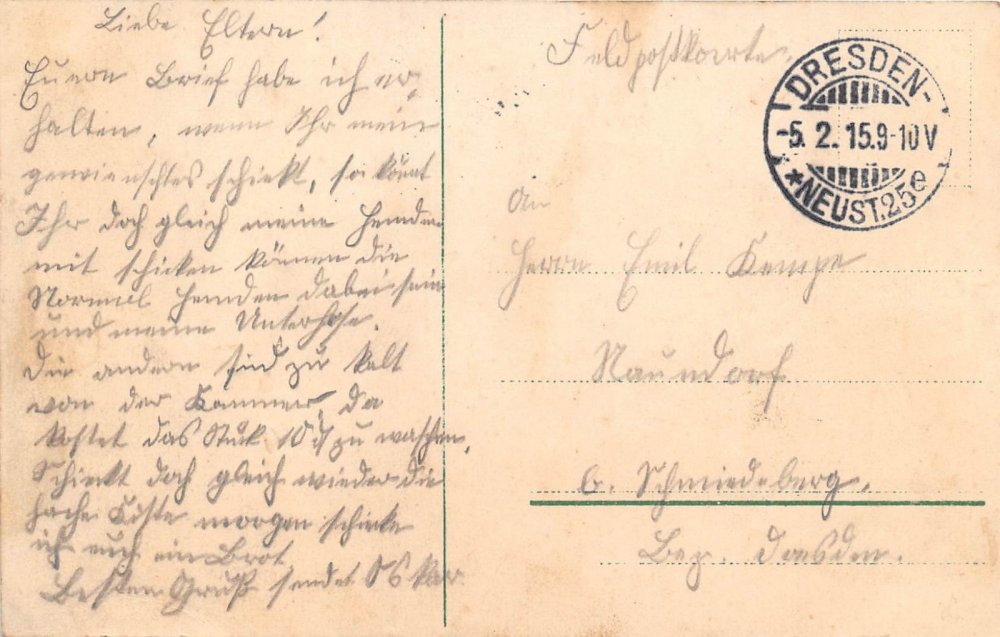 Liebe Eltern!
Euern Brief habe ich er-
halten, wenn Ihr mein
gewünschtes schickt, so könnt
Ihr doch gleich meine Hemden
mit schicken können die
Normal Hemden dabei sein
und meine Unterhose.
Die andern sind zu kalt
von der Kammer, da
kostet das Stück 10 d zu waschen,
Schickt doch gleich wieder die
Kiste morgen schicke
ich euch ein Brot
Besten Gruß sendet Oskar
Feldpostkarte.
DRESDEN-
-5. 2. 15. 9-10V
*NEUST. 25e
An
Herrn Emil Kempe
Naundorf
b. Schmiedeberg.
Bez. Dresden.